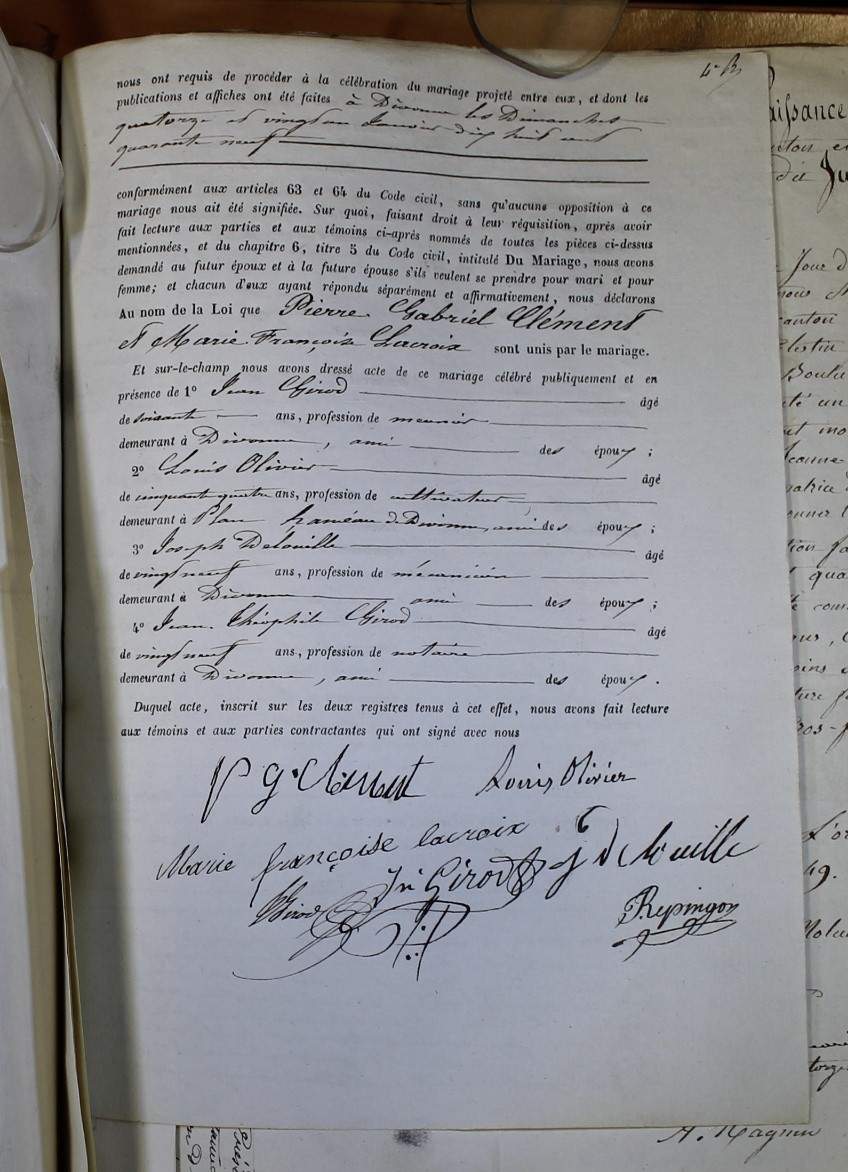 nous ont requis de procéder à la célébration du mariage projeté entre eux, et dont les
publications et affiches ont été faites à Divonne les Dimanches
quatorze et vingt un Janvier dix huit cent
quarante neuf
conformément aux articles 63 et 64 du Code civil, sans qu'aucune opposition à ce
mariage nous ait été signifiée. Sur quoi, faisant droit à leur réquisition, après avoir
fait lecture aux parties et aux témoins ci-après nommés de toutes les pièces ci-dessus
mentionnées, et du chapitre 6, titre 5 du Code civil, intitulé Du Mariage, nous avons
demandé au futur époux et à la future épouse s'ils veulent se prendre pour mari et pour
femme; et chacun d'eux ayant répondu séparément et affirmativement, nous déclarons
Au nom de la Loi que Pierre Gabriel Clément
et Marie Françoise Lacroix sont unis par le mariage.
Et sur-le-champ nous avons dressé acte de ce mariage célébré publiquement et en
présence de 1° Jean Girod âgé
de soixante ans, profession de meunier
demeurant à Divonne, ami des époux ;
2° Louis Olivier âgé
de cinquante quatre ans, profession de cultivateur
demeurant à Plan hameau de Divonne, ami des époux ;
3° Joseph Delouille âgé
de vingt neuf ans, profession de mécanicien
demeurant à Divonne ami des époux ;
4° Jean Théophile Girod âgé
de vingt neuf ans, profession de notaire
demeurant à Divonne, ami des époux .
Duquel acte, inscrit sur les deux registres tenus à cet effet, nous avons fait lecture
aux témoins et aux parties contractantes qui ont signé avec nous
P G Clément Louis Olivier
Marie françoise lacroix
Girod Jn Girod
Repingon